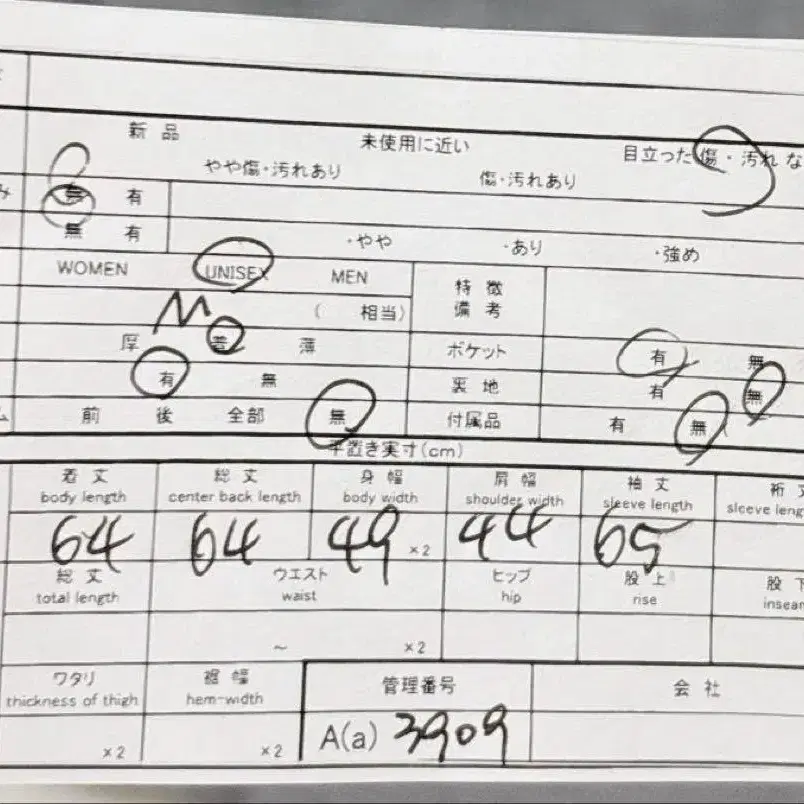 新品 未使用に近い 目立った傷・汚れな
やや傷・汚れあり 傷・汚れあり
み 無 有
無 有 ・やや ・あり ・強め
WOMEN UNISEX MEN 特徴
備考
M ( 相当)
厚 普 薄 ポケット 有 無
有 無 裏地 有 無
ム 前 後 全部 無 付属品 有 無
平置き実寸(cm)
着丈 総丈 身幅 肩幅 袖丈 裄丈
body length center back length body width shoulder width sleeve length sleeve leng
64 64 49 ×2 44 65
総丈 ウエスト ヒップ 股上 股下
total length waist hip rise inseam
~ ×2
ワタリ 裾幅 管理番号 会社
thickness of thigh hem-width
×2 ×2 A(a) 3909